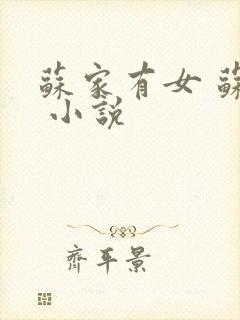 蘇家有女 蘇
小說
齊平景